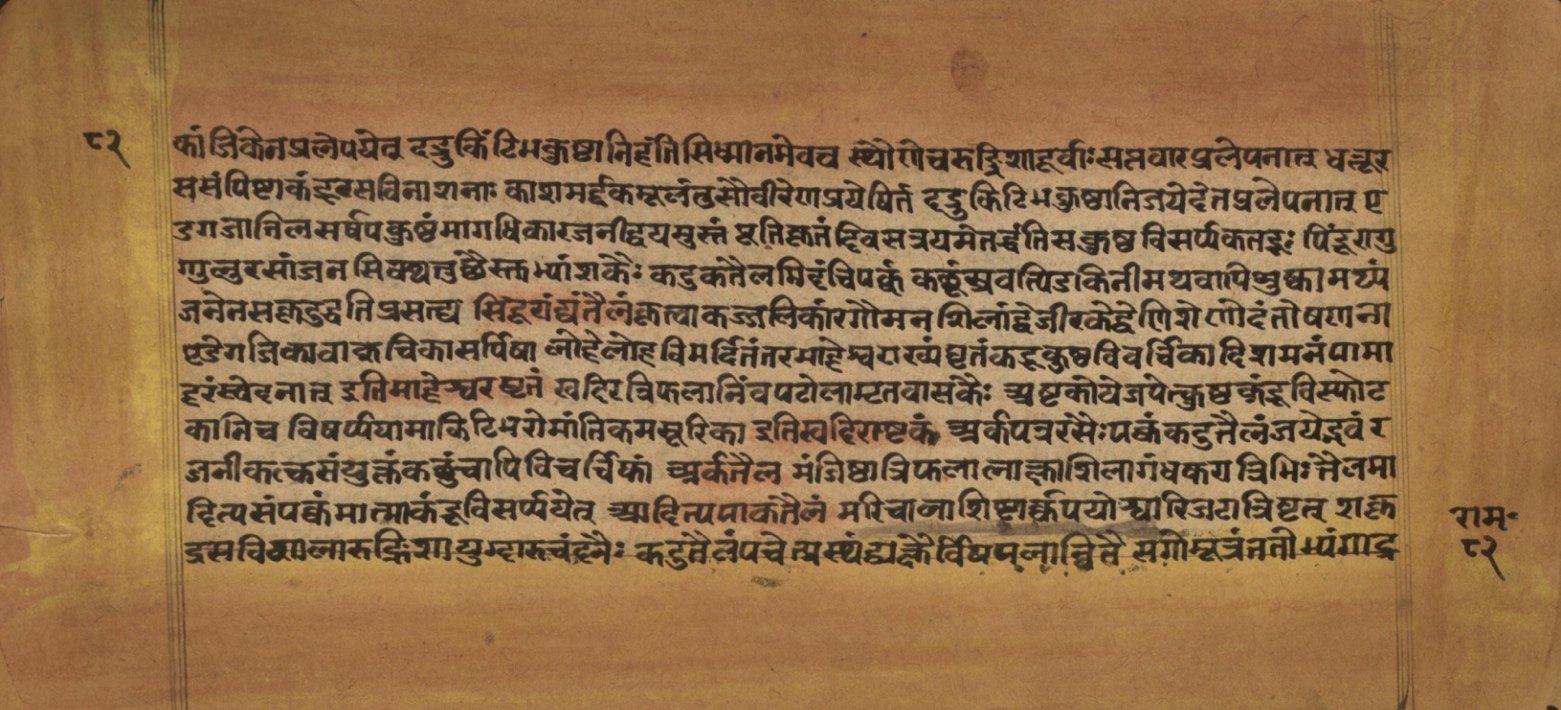 ८२
कांजिकेनप्रलेपयेत् दद्रुकिंटिमकुष्ठानिहंतिसिध्मानमेवच स्थौणेचरुद्रिशादूर्वाःसप्तवारप्रलेपनात् धत्तूर
ससंपिष्टाकंडूरसविनाशनाः काशमर्द्दकमूलंतुसौवीरेणप्रयेषितं दद्रुकिटिभकुष्ठानिजयेदेतप्रलेपनात् ए
डगजातिलसर्षपकुष्ठंमागधिकारजनीद्वयमुस्तं पूतिकृतंदिवसत्रयमेतद्धंतिसकुष्ठविसर्प्यकतद्रूः सिंदूरागु
ग्गुलुरसांजनसिक्थतुछैस्तभ्यांशकैः कटुकतैलमिदंचिपक्कं कछूंश्रवत्पिडकिनीमथवापिशुष्कामभ्यं
जनेनसकृदुद्धतिप्रसत्द्य सिंदूराद्यंतैलं कृत्वाकज्जलिकांरगौमनशिलांद्वेजीरकेद्वेणिशेगोदंतोषणना
एडगजिकावाकुचिकासर्पिषा लोहेलोहविमर्दितंतरमाहेश्वराख्यंघृतंकडूकुष्ठविचर्चिकादिशमनंपामा
हरंस्वेदनात् इतिमाहेश्वरघृतं खदिरत्रिफलानिंवपटोलामृतवासकैः अष्टकोयेजयेत्कुष्ठकंडूविस्फोट
कानिच विषर्प्पपामाकिटिभरोमांतिकमसूरिका इतिखदिराष्टकं अर्कपत्ररसैःपक्वंकटुतैलंजयेद्ध्रुवं र
जनीकल्कसंयुक्तंकछूंचापिविचर्चिकां अर्कतैल मंजिष्ठात्रिफलालाक्षाशिलागंधकरात्रिभिःतैलमा
दित्यसंपक्वंमात्माकंडूविसर्प्पयेत् आदित्यपाकंतैलं मरिचालाशिष्टार्कपयोश्वारिजटात्रिष्टत् शकृ
द्रसविशालारुङ्निशायुग्दारुचंदनैः कटुतैलंपचेत्प्रस्थंद्यक्षैर्विषपलान्वितैः सगोमूत्रंततोभ्यंगाद्द
राम॰
८२